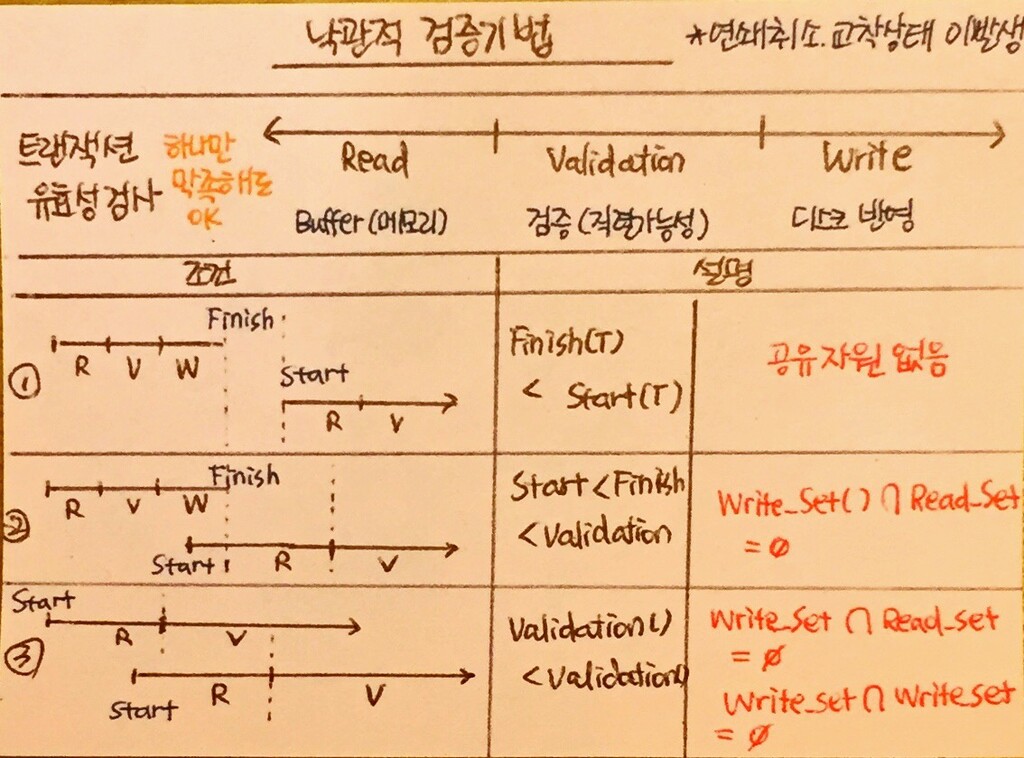 낙관적 검증기법
*연쇄취소.교착상태 이발생
트랜잭션 하나만
유효성검사 만족해도
OK
Read Validation Write
Buffer(메모리) 검증(직렬가능성) 디스크 반영
조건 설명
①
Finish
R V W
Start
R V
Finish(T)
< Start(T)
공유자원 없음
②
Finish
R V W
Start
R V
Start < Finish
< Validation
Write_Set() ∩ Read_Set
= ∅
③
Start
R V
R V
Start
Validation()
< Validation()
Write_Set ∩ Read_set
= ∅
Write_set ∩ Write_set
= ∅